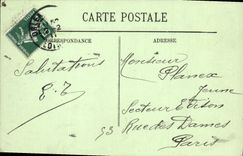 CARTE POSTALE
CORRESPONDANCE
ADRESSE
Salutations
E. T
Monsieur
Planex
Jeune
Secteur
53 Rue des Dames
Paris